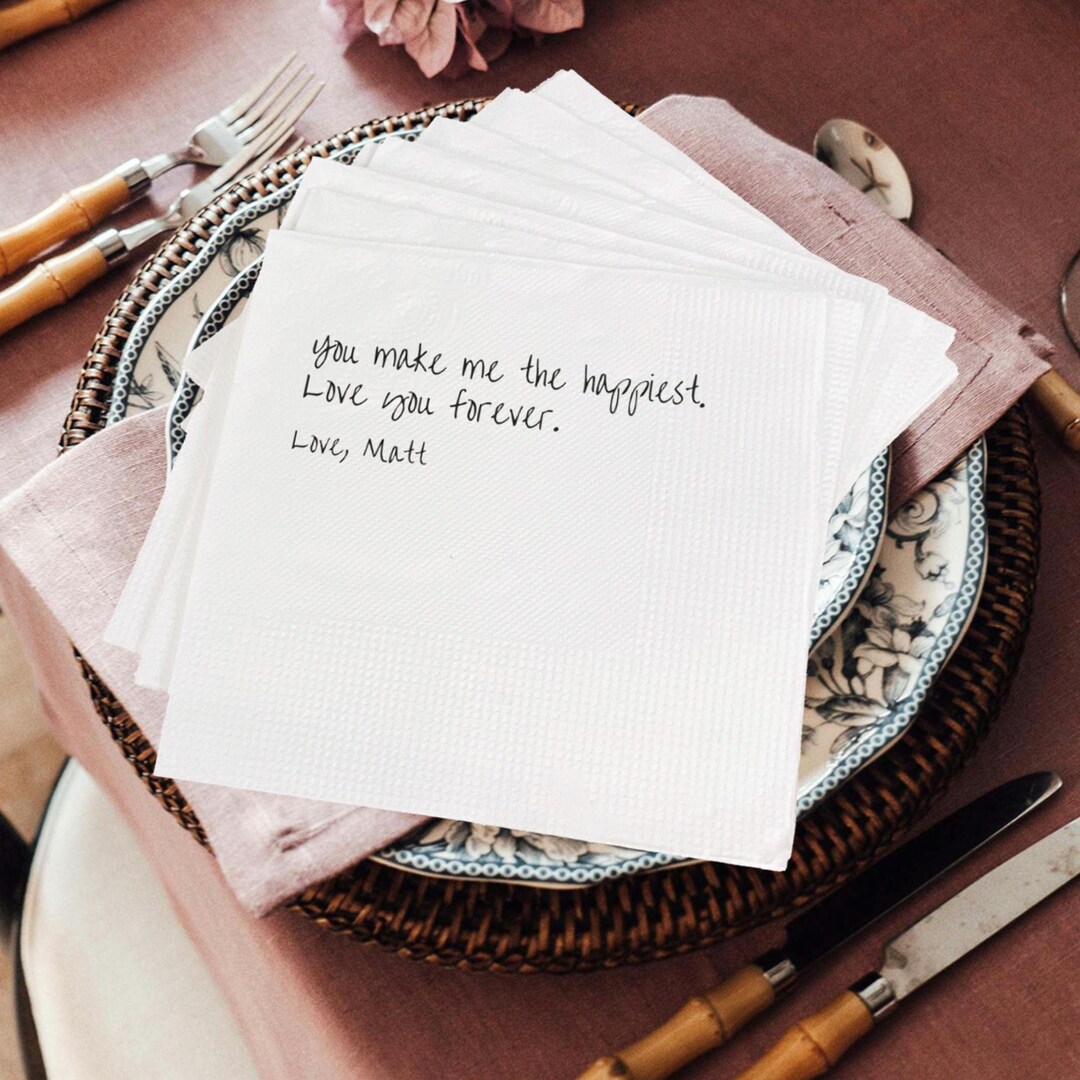 you make me the happiest.
Love you forever.
Love, Matt